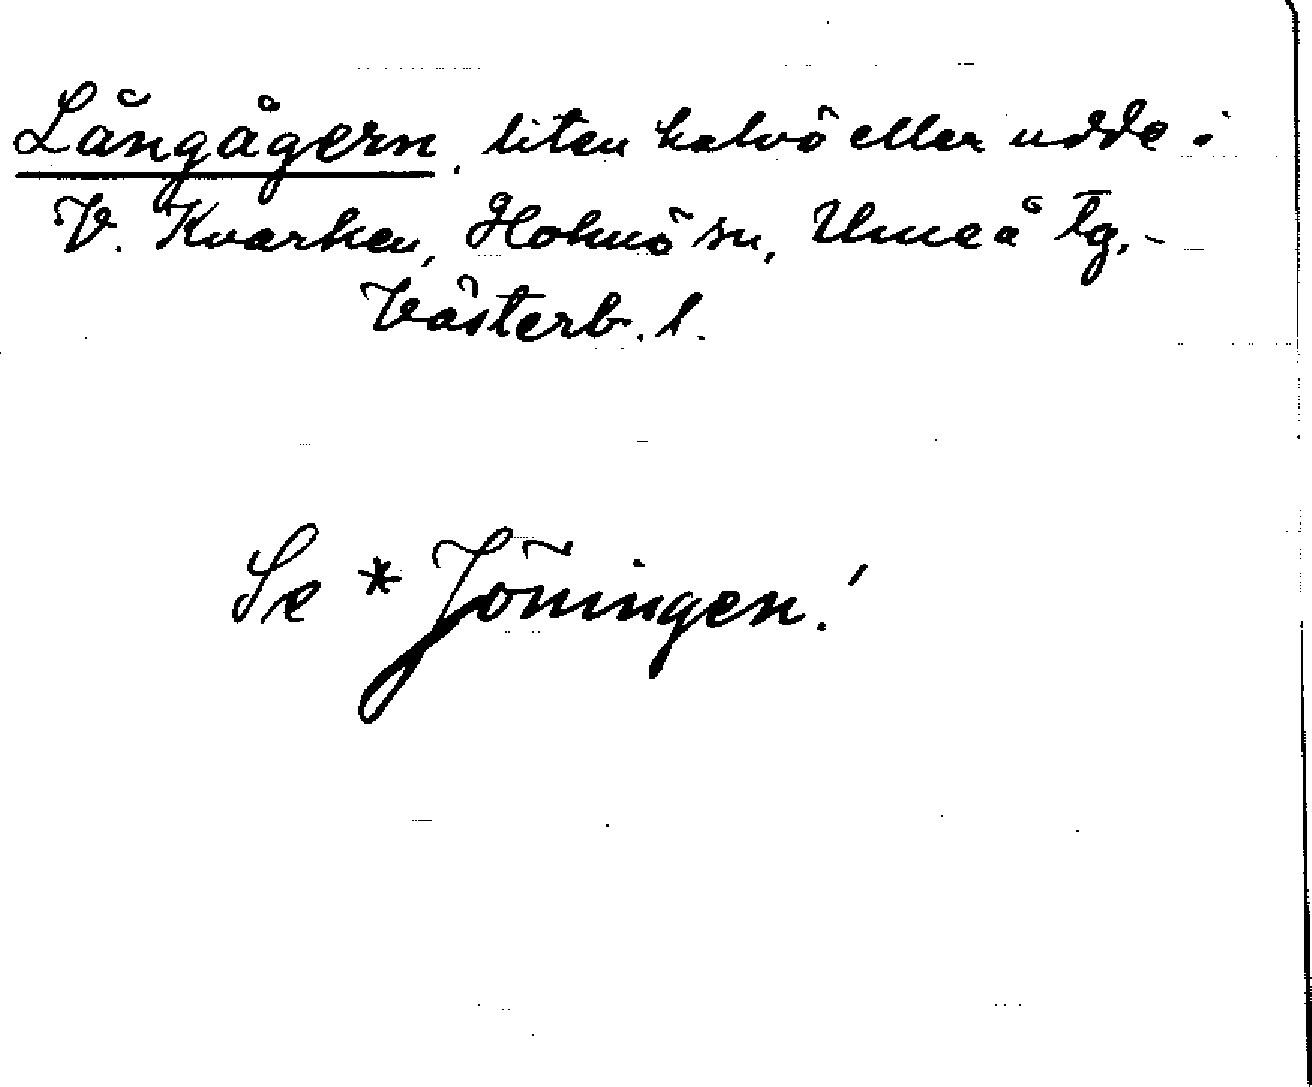 Långågern, liten halvö eller udde i
V. Kvarken, Holmö sn, Umeå tg,-
Västerb. l.
Se * Jöningen!